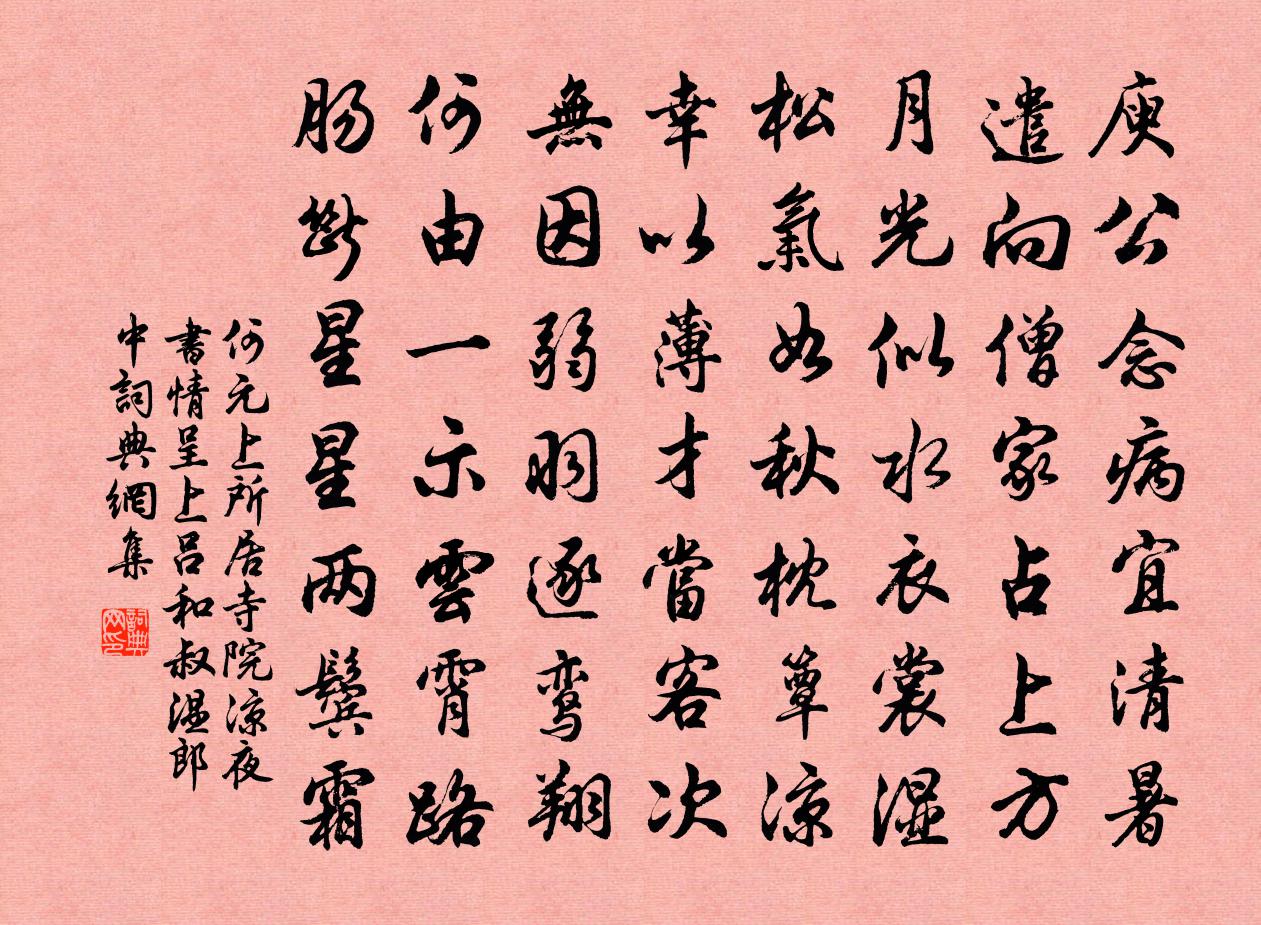 庾公念病宜清暑
遣向僧家占上方
月光似水衣裳湿
松氣如秋枕簟涼
幸以薄才當客次
無因弱羽逐鸾翔
何由一示雲霄路
腸斷星星两鬢霜
何元上所居寺院涼夜
書情呈上吕和叔温郎
中詞典網集
詞典网印